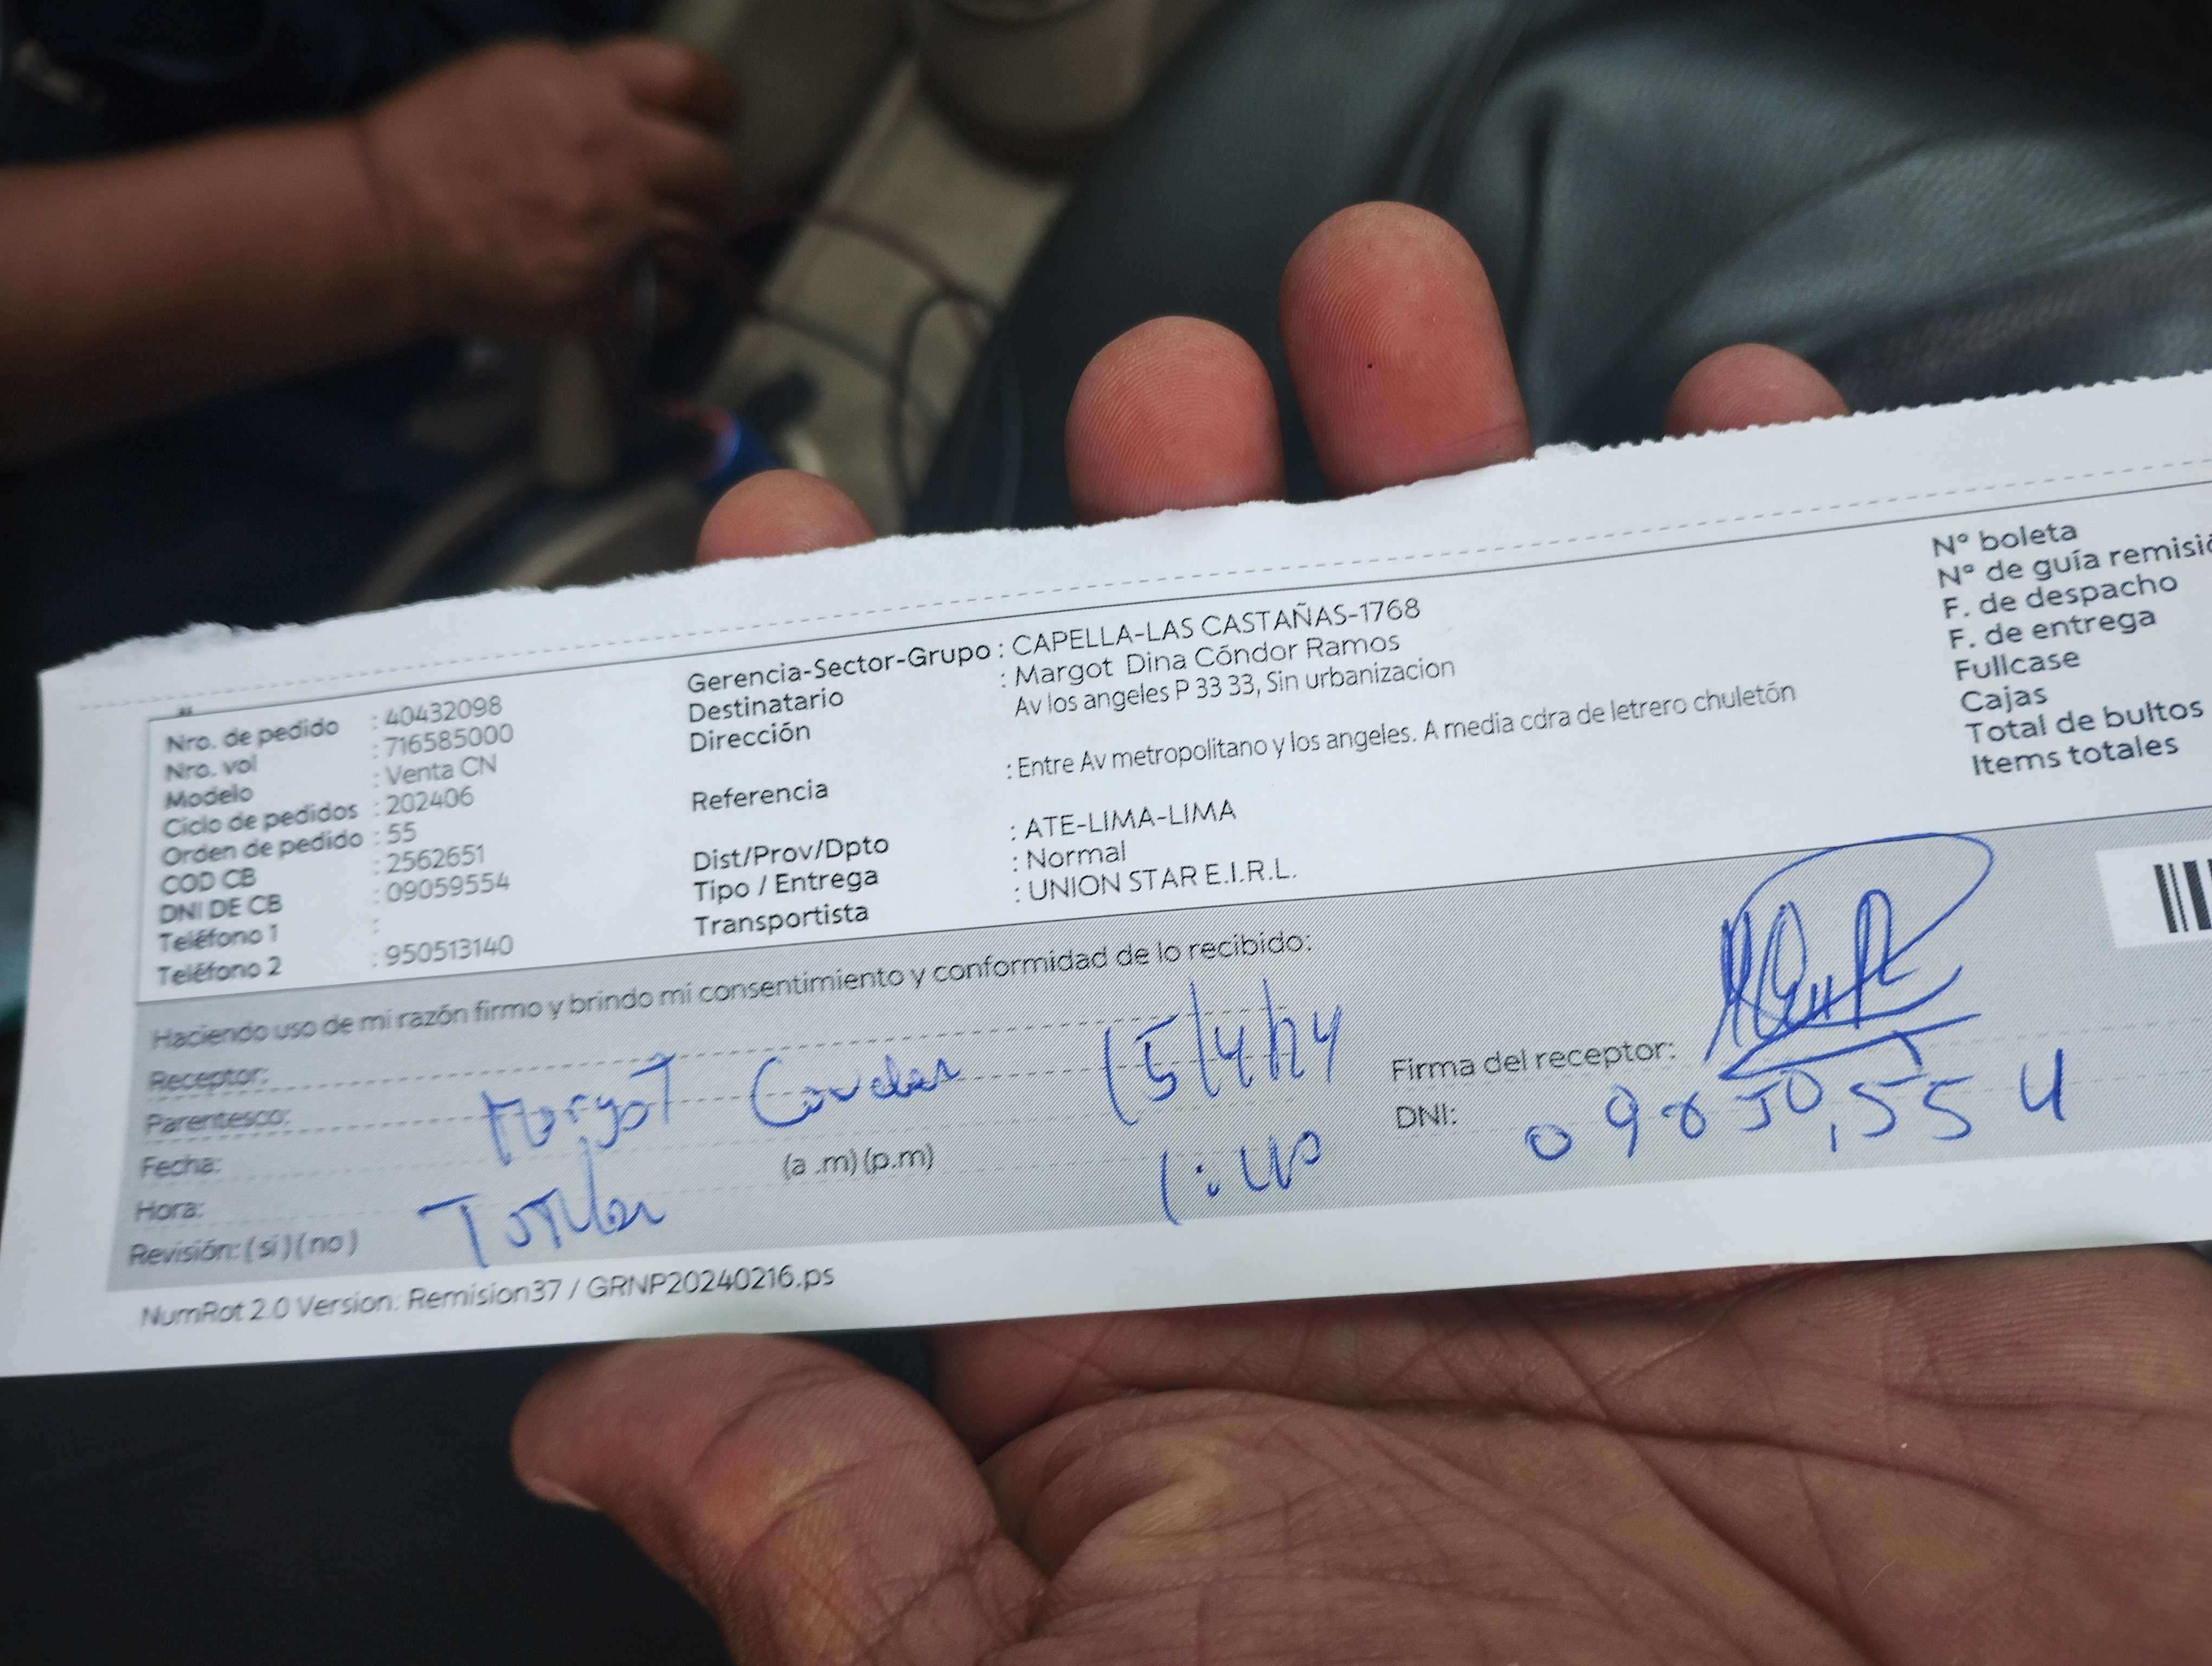 Nro. de pedido : 40432098
Nro. vol : 716585000
Modelo : Venta CN
Ciclo de pedidos : 202406
Orden de pedido : 55
COD CB : 2562651
DNI DE CB : 09059554
Teléfono 1 :
Teléfono 2 : 950513140
Gerencia-Sector-Grupo : CAPELLA-LAS CASTAÑAS-1768
Destinatario : Margot Dina Cóndor Ramos
Dirección Av los angeles P 33 33, Sin urbanizacion
Referencia : Entre Av metropolitano y los angeles. A media cdra de letrero chuletón
Dist/Prov/Dpto : ATE-LIMA-LIMA
Tipo / Entrega : Normal
Transportista : UNION STAR E.I.R.L.
N° boleta
N° de guía
F. de despacho
F. de entrega
Fullcase
Cajas
Total de bultos
Items totales
Haciendo uso de mi razón firmo y brindo mi consentimiento y conformidad de lo recibido:
Receptor:
Parentesco: Margot
Fecha: 15/4/24
Hora: (a .m) (p.m) 1:40
Revisión: (si) (no)
Firma del receptor:
DNI:
NumRot 2.0 Version: Remision37 / GRNP20240216.ps